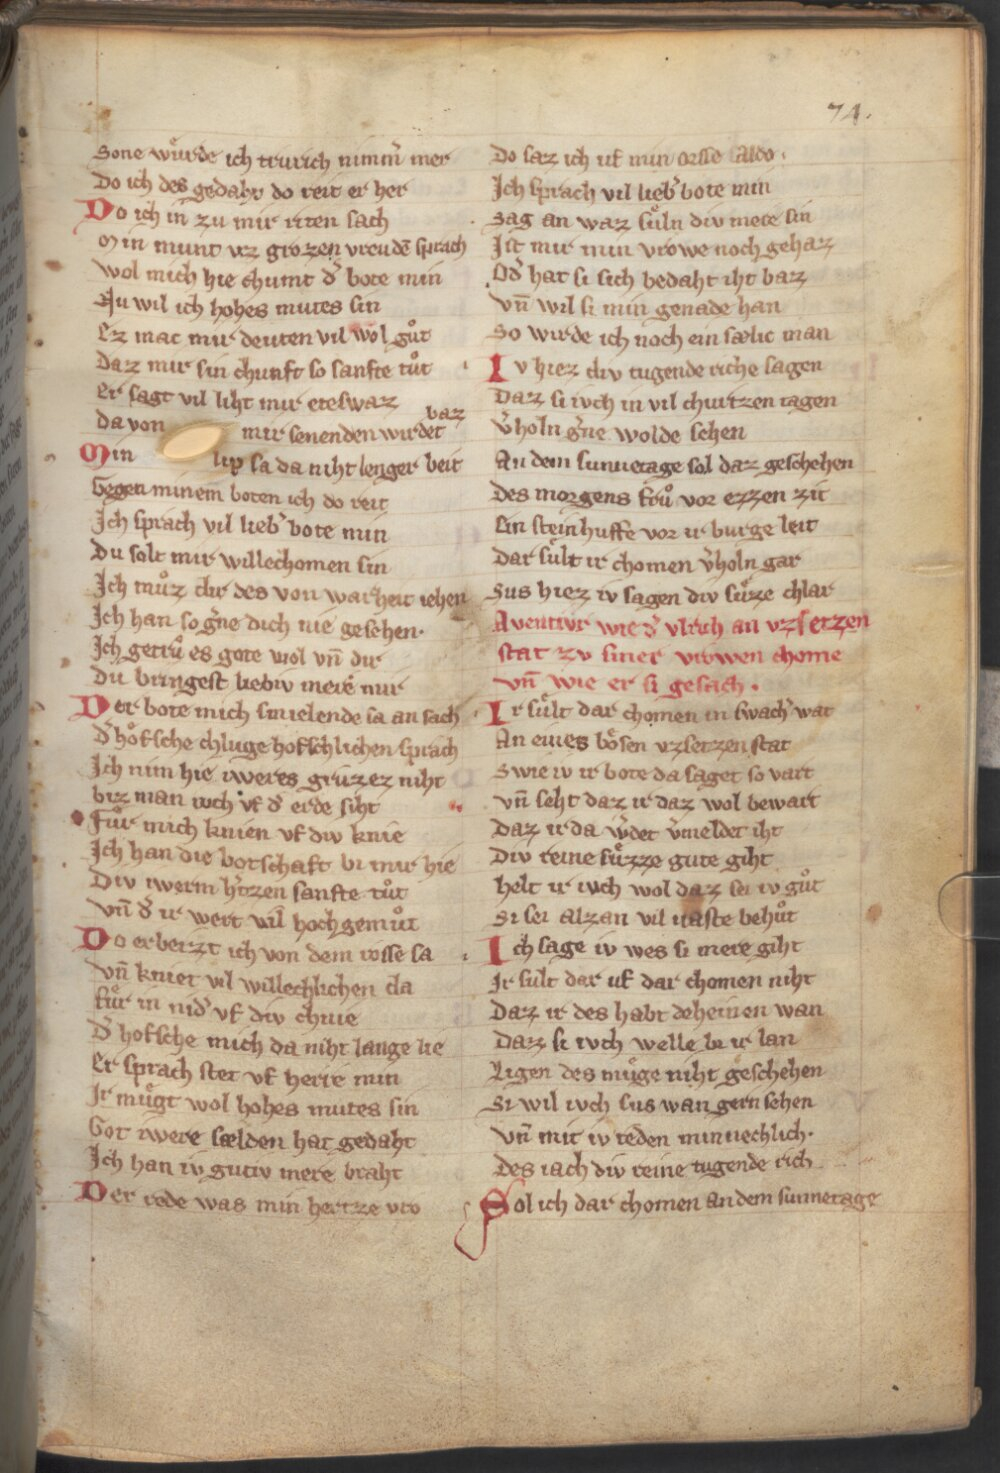 74.
Sone wuͤrde ich trurich nimm̄ mer
Do ich des gedaht do reit er her
Do ich in zu mir riten sach
Min munt vz grozen vreudē sprach
Wol mich hie chumt d̓ bote min
Nu wil ich hohes mutes sin
Ez mac mir deuten vil wol guͦt
Daz mir sin chunft so sanfte tuͦt
Er sagt vil liht mir eteswaz
da von mir senenden wirdet baz
Min lip sa da niht lenger beit
Gegen minem boten ich do reit
Ich sprach vil lieb̓ bote min
Du solt mir willechomen sin
Ich muͦz dir des von warheit iehen
Ich han so g̓ne dich nie gesehen.
Ich getruͦ es gote wol vn̄ dir
du bringest liebiv mere mir
Der bote mich smielende sa an sach
d̓ hoͤfsche chluge hofschlichen sprach
Ich nim hie iweres gruzez niht
biz man ivch vf d̓ erde siht
Fuͤr mich knien vf div knie
Ich han die botschaft bi mir hie
Div iwerm h̓tzen sanfte tuͦt
vn̄ d̓ ir wert vil hochgemuͦt
Do erbeizt ich von dem rosse sa
vn̄ kniet vil willechlichen da
fuͤr in nid̓ vf div chnie
d̓ hofsche mich da niht lange lie
Er sprach stet vf herre min
Ir muͤgt wol hohes mutes sin
Got iwere sælden hat gedaht
Ich han iv gutiv mere braht
Der rede was min hertze vro
Do saz ich uf min orsse aldo.
Ich sprach vil lieb̓ bote min
sag an waz suͤln div mere sin
Ist mir min vrowe noch gehaz
Od̓ hat si sich bedaht iht baz
vn̄ wil si min genade han
So wirde ich noch ein sælic man
Iv hiez div tugende riche sagen
Daz si ivch in vil churtzen tagen
v̓holn g̓ne wolde sehen
An dem sunnetage sol daz geschehen
des morgens fruͦ vor ezzen zit
Ein steinhuffe vor ir burge leit
Dar suͤlt ir chomen v̓holn gar
Sus hiez iv sagen div suͤze chlar
Aventivr wie d̓ vlrich an vzsetzen
stat zv siner vrowen chome
vn̄ wie er si gesach.
Ir suͤlt dar chomen in swach̓ wat
An eines boͤsen vzsetzen stat
Swie iv ir bote da saget so vart
vn̄ seht daz ir daz wol bewart
Daz ir da w̓det v̓meldet iht
Div reine suͤzze gute giht
helt ir ivch wol daz sei iv guͦt
Si sei alzan vil vaste behuͦt
Ich sage iv wes si mere giht
Ir sult dar uf dar chomen niht
Daz ir des habt deheinen wan
Daz si ivch welle bi ir lan
Ligen des muͤge niht geschehen
Si wil ivch sus wan gern sehen
vn̄ mit iv reden minnechlich.
Des iach div reine tugende rich
Sol ich dar chomen an dem sunnetage